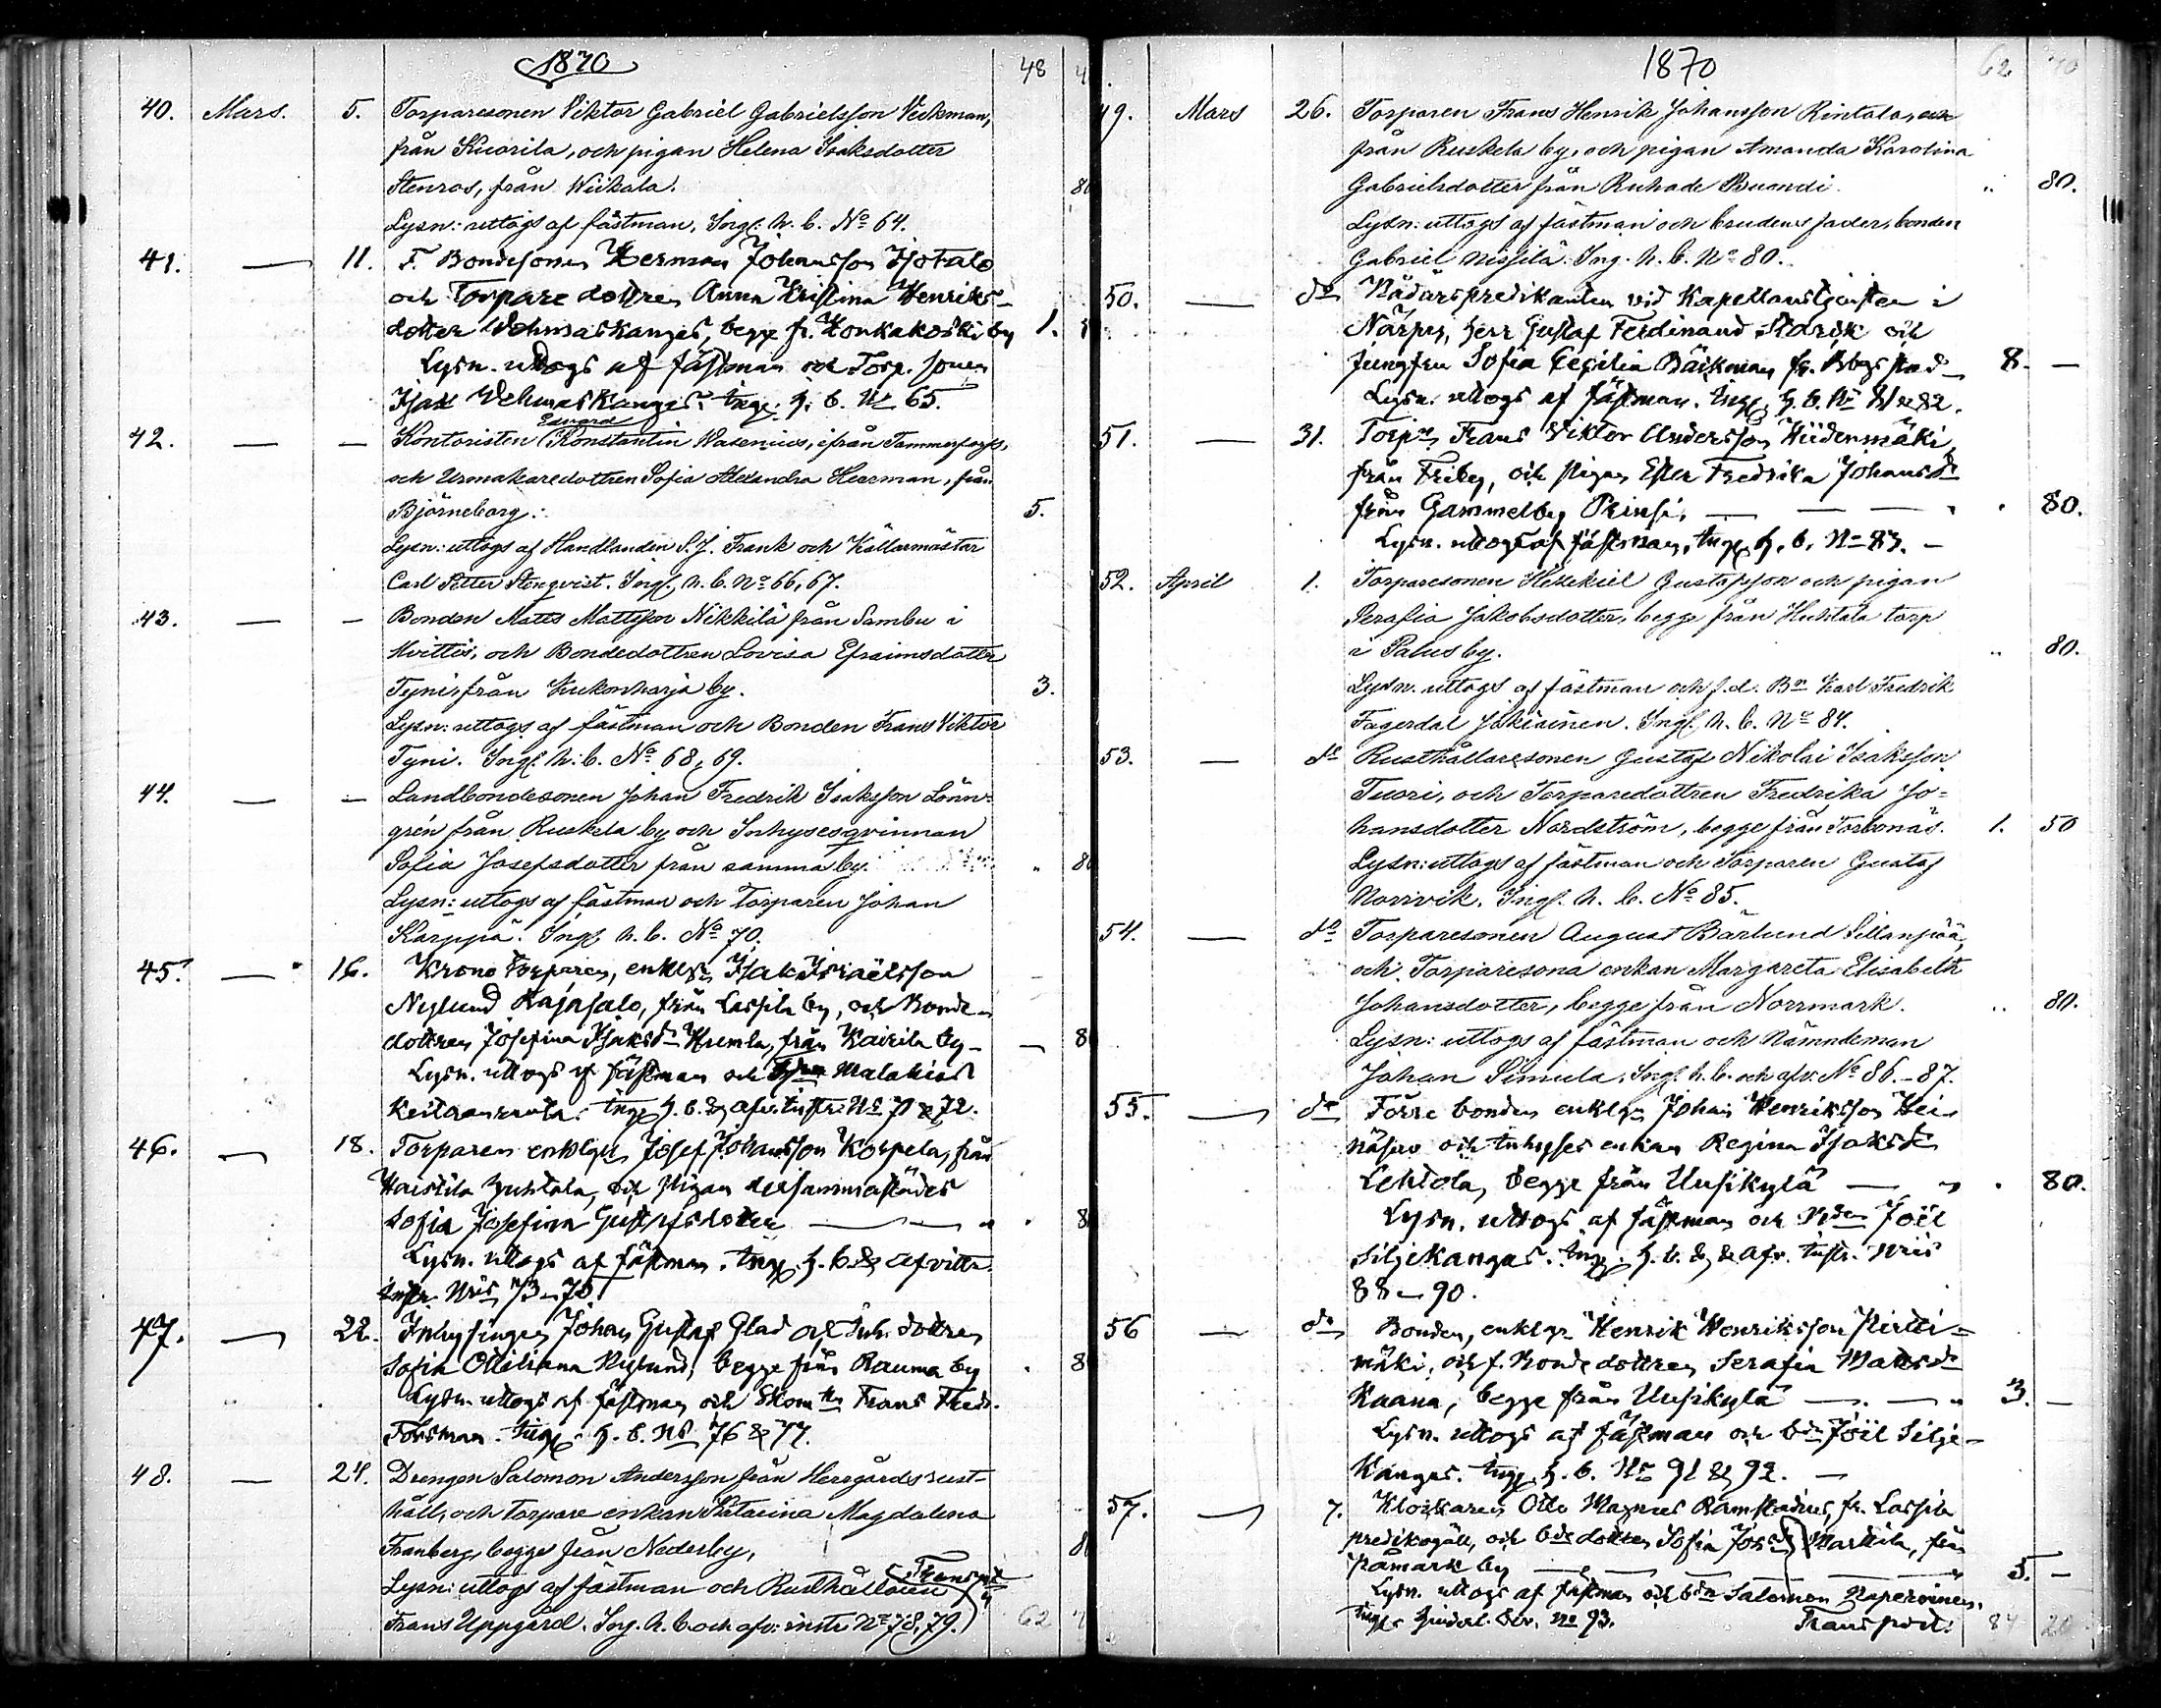 1870 48
40. Mars. 5. Torparesonen Viktor Gabriel Gabrielsson Veckman,
från Kuorila, och pigan Helena Isaksdotter
Stenros, från Wiikala. 80
Lysn: uttogs af fästman, Ingf. h. b. No 64.
41. — 11. F. Bondesonen Herman Johansson Isotalo
och Torpare dottren Anna Kristina Henriks-
dotter Vehmaskangas, begge fr. Konkakoski by 1.
Lysn. uttogs af fästman och Torp. sonen
Isak Vehmaskangas. Ingf. h. b. No 65.
Edvard
42. — — Kontoristen Konstantin Wasenius, ifrån Tammerfors,
och Urmakaredottren Sofia Alexandra Heerman, från
Björneborg. 5.
Lysn: uttogs af Handlanden S. J. Frank och Källarmästar
Carl Petter Stenqvist. Ingf. h. b. No 66, 67.
43. — — Bonden Matts Mattsson Nikkilä från Sambu i
Hvittis, och Bondedottren Lovisa Efraimsdotter
Tyni, från Kukonharja by. 3.
Lysn: uttogs af fästman och Bonden Frans Viktor
Tyni. Ingf. h. b. No 68, 69.
44. — — Landbondesonen Johan Fredrik Isaksson Lönn-
grén från Ruskela by och Inhysesqvinnan
Sofia Josefsdotter från samma by. " 80
Lysn: uttogs af fästman och Torparen Johan
Karppa. Ingf. h. b. No 70.
45. — 16. Krono torparen, enklgn Isak Israelsson
Nylund Rajasalo, från Lassila by, och Bonde-
dottren Josefina Isaksdr Humla, från Kairila by — 8
Lysn. uttogs af fästman och Malakias
Keitaanranta. Ingf. h. b. & afv. instr. No 71 & 72.
46. — 18. Torparen enklgn Josef Johansson Korpela, från
Haistila Juhtala, och pigan dersammastädes
Sofia Josefina Gustafsdotter — — " 8
Lysn. uttogs af fästman. Ingf. h. b. & Afvittr.
instr. Nris 73–75.
47. — 22. Inhysingen Johan Gustaf Glad och Inh. dottren
Sofia Ottiliana Nylund, begge från Rauma by . 8
Lysn. uttogs af fästman och Skom Frans Fredr.
Forsman. Ingf. h. b. No 76 & 77.
48. — 24. Drengen Salomon Andersson från Herrgårds rust-
håll, och torpare enkan Katarina Magdalena
Franberg, begge från Nederby, 8
Transpt
Lysn: uttogs af fästman och Rusthållaren
Frans Uppgård. Ing. h. b. och afv: instr No 78, 79. 62
1870 62 40
49. Mars 26. Torparen Frans Henrik Johansson Rintala,
från Ruskela by, och pigan Amanda Karolina
Gabrielsdotter från Ruhade Ruandi. " 80.
Lysn: uttogs af fästman och brudens fader, bonden
Gabriel Nissilä. Ing. h. b. No 80.
50. — do Nådårspredikanten vid Kapellanstjensten i
Närpes, herr Gustaf Ferdinand Stärik och
Jungfru Sofia Cecilia Bäckman fr. stad 8. —
Lysn. uttogs af fästman. Ingf. h. b. No 81 & 82.
51. — 31. Torpn Frans Viktor Andersson Hiidenmäki
från Friby, och pigan Ester Fredrika Johansdr
från Gammelby Prinsi. — — — " . 80.
Lysn. uttogs af fästman, Ingf. h. b. No 83. —
52. April 1. Torparesonen Hesekiel Gustafsson och pigan
Serafia Jakobsdotter, begge från Huhtala torp
i Palus by. " 80.
Lysn. uttogs af fästman och f.d. Bn Karl Fredrik
Fagerdal Jokiainen. Ingf. h. b. No 84.
53. — do Rusthållaresonen Gustaf Nikolai Isaksson
Tuori, och Torparedottren Fredrika Jo-
hansdotter Nordström, begge från Torbonäs. 1. 50
Lysn: uttogs af fästman och Torparen Gustaf
Norrvik. Ingf. h. b. No 85.
54. — do Torparesonen August Bärlund Sillanpää,
och Torparesona enkan Margareta Elisabeth
Johansdotter, begge från Norrmark. " 80.
Lysn: uttogs af fästman och Nämndeman
Johan Simula. Ingf. h. b. och afv. No 86.–87.
55. — do Förre bonden enklgn Johan Henriksson Hei-
näharo och Inhyses enkan Regina Isaksdr
Lehtola, begge från Uusikylä — " . 80.
Lysn. uttogs af fästman och Joël
Siljekangas. Ingf. h. b. & afv. instr. Nris
88–90.
56 — do Bonden, enklgn Henrik Henriksson Pirtti-
mäki, och f. Bonde dottren Serafia Mattsdr
Kaana, begge från Uusikylä — . — " 3. —
Lysn. uttogs af fästman och bdn Joël Silje-
kangas. Ingf. h. b. No 91 & 92. —
57. — 7. Klockaren Otto Magnus Ramstadius, fr. Lassila
predikogäll, och bde dottren Sofia Josdr Marttila, från
Påmark by — — — — " 5. —
Lysn. uttogs af fästman och bdn Salomon
Ingf. No 93. Transport. 84 20